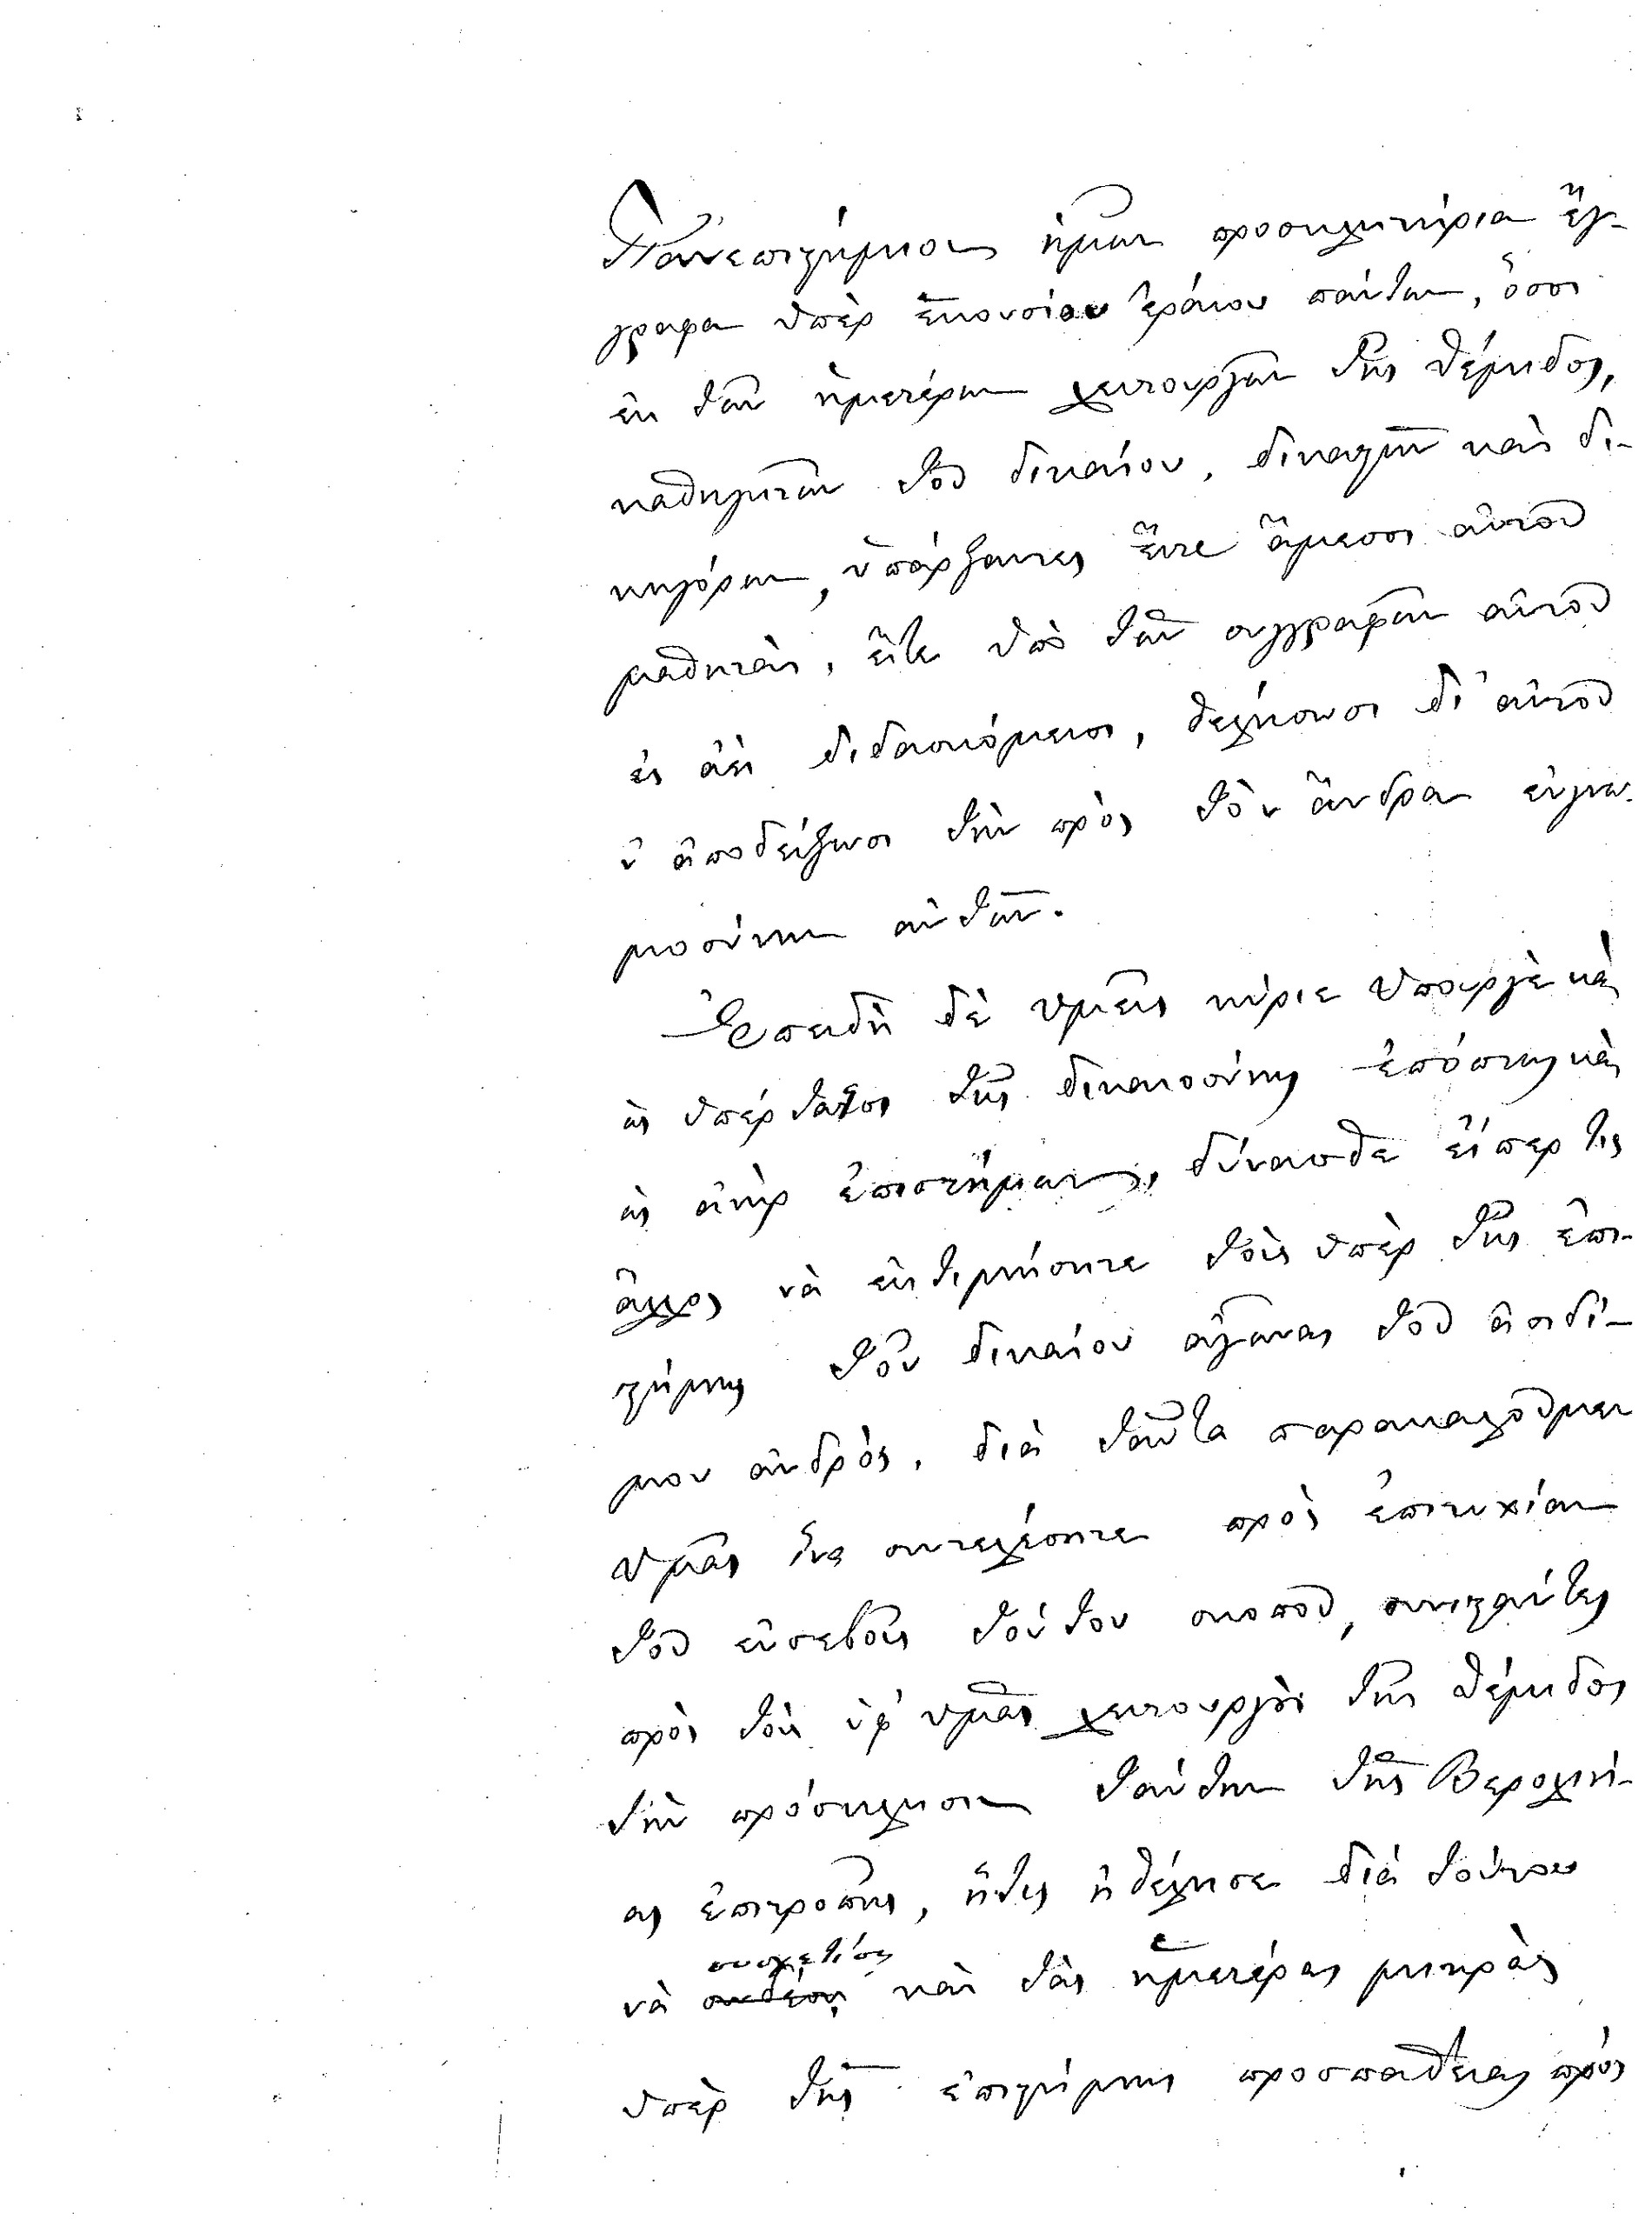 Πανεπιστήμιον ἡμῶν προσκλητήρια ἔγ-
γραφα ὑπὲρ ἑκουσίου ἐράνου πάντων, ὅσοι
ἐκ τῶν ἡμετέρων λειτουργῶν τῆς Θέμιδος,
καθηγητῶν τοῦ δικαίου, δικαστῶν καὶ δι-
κηγόρων, ὑπάρξαντες εἴτε ἄμεσοι αὐτοῦ
μαθηταὶ, εἴτε ὑπὸ τῶν συγγραφῶν αὐτοῦ
ἐς ἀεὶ διδασκόμενοι, θελήσωσι δι' αὐτοῦ
ν' ἀποδείξωσι τὴν πρὸς τὸν ἄνδρα εὐγνω-
μοσύνην αὐτῶν.
Ἐπειδὴ δὲ ὑμεῖς κύριε Ὑπουργὲ καὶ
ὡς ὑπέρτατος τῆς δικαιοσύνης ἐπόπτης καὶ
ὡς ἀνὴρ ἐπιστήμων, δύνασθε εἴπερ τις
ἄλλος νὰ ἐκτιμήσητε τοὺς ὑπὲρ τῆς ἐπι-
στήμης τοῦ δικαίου ἀγῶνας τοῦ ἀοιδί-
μου ἀνδρὸς, διὰ ταῦτα παρακαλοῦμεν
ὑμᾶς ἵνα συντελέσητε πρὸς ἐπιτυχίαν
τοῦ εὐσεβοῦς τούτου σκοποῦ, συνιστῶντες
πρὸς τοὺς ὑφ' ὑμᾶς λειτουργοὺς τῆς Θέμιδος
τὴν πρόσκλησιν ταύτην τῆς Βερολινί-
ας ἐπιτροπῆς, ἥτις ἠθέλησε διὰ τούτου
συσχετίσῃ
νὰ συνδέσῃ καὶ τὰς ἡμετέρας μικρὰς
ὑπὲρ τῆς ἐπιστήμης προσπαθείας πρὸς